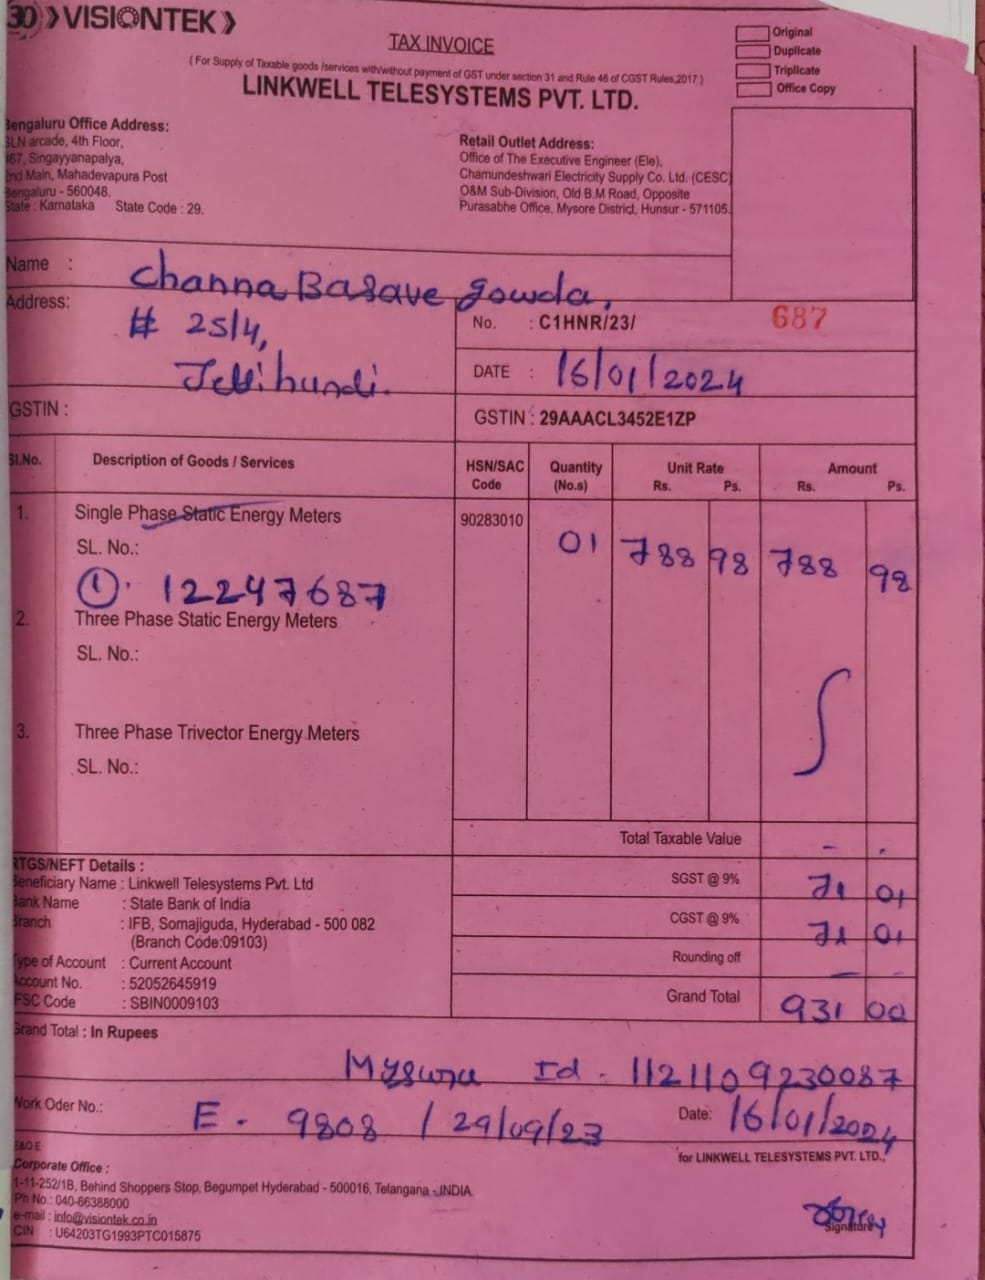 VISIONTEK
TAX INVOICE
(For Supply of Taxable goods /services with/without payment of GST under section 31 and Rule 46 of CGST Rules,2017)
LINKWELL TELESYSTEMS PVT. LTD.
Original
Duplicate
Triplicate
Office Copy
Bengaluru Office Address:
SLN arcade, 4th Floor,
#67, Singayyanapalya,
2nd Main, Mahadevapura Post
Bengaluru - 560048.
State : Karnataka State Code : 29.
Retail Outlet Address:
Office of The Executive Engineer (Ele),
Chamundeshwari Electricity Supply Co. Ltd. (CESC)
O&M Sub-Division, Old B.M Road, Opposite
Purasabhe Office, Mysore District, Hunsur - 571105.
Name : Channa Basave gowda,
Address: # 25/4,
No. : C1HNR/23/ 687
DATE : 16/01/2024
GSTIN :
GSTIN : 29AAACL3452E1ZP
Sl.No. Description of Goods / Services HSN/SAC Code Quantity (No.s) Unit Rate Rs. Ps. Amount Rs. Ps.
1. Single Phase Static Energy Meters 90283010 01 788 98 788 98
SL. No.:
①. 12247687
2. Three Phase Static Energy Meters
SL. No.:
3. Three Phase Trivector Energy Meters
SL. No.:
Total Taxable Value - .
SGST @ 9% 71 01
CGST @ 9% 71 01
Rounding off — -
Grand Total 931 00
RTGS/NEFT Details :
Beneficiary Name : Linkwell Telesystems Pvt. Ltd
Bank Name : State Bank of India
Branch : IFB, Somajiguda, Hyderabad - 500 082
(Branch Code:09103)
Type of Account : Current Account
Account No. : 52052645919
IFSC Code : SBIN0009103
Grand Total : In Rupees
Id - 1121109230087
Work Oder No.: E. 9808 / 29/09/23
Date: 16/01/2024
E&O E
for LINKWELL TELESYSTEMS PVT. LTD.,
Corporate Office :
1-11-252/1B, Behind Shoppers Stop, Begumpet Hyderabad - 500016, Telangana - INDIA.
Ph No.: 040-66388000
e-mail : info@visiontek.co.in
CIN : U64203TG1993PTC015875
Signature